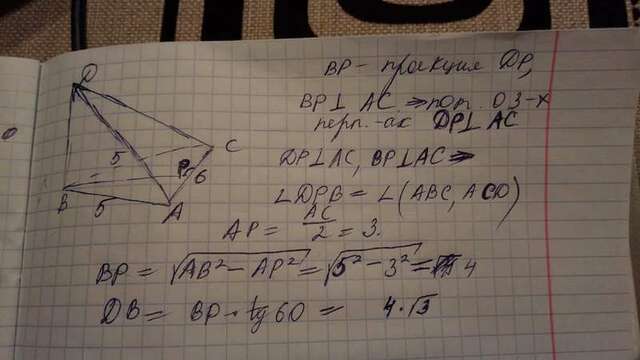 D
BP - проекция DP,
BP⊥ AC ⇒ по т. О 3-х
перп.-ах DP⊥AC
5
C
P
6
B
5
A
DP⊥AC, BP⊥AC ⇒
∠DPB = ∠(ABC, ACD)
AP = AC/2 = 3.
BP = √(AB² - AP²) = √(5² - 3²) = 4
DB = BP · tg 60 = 4·√3